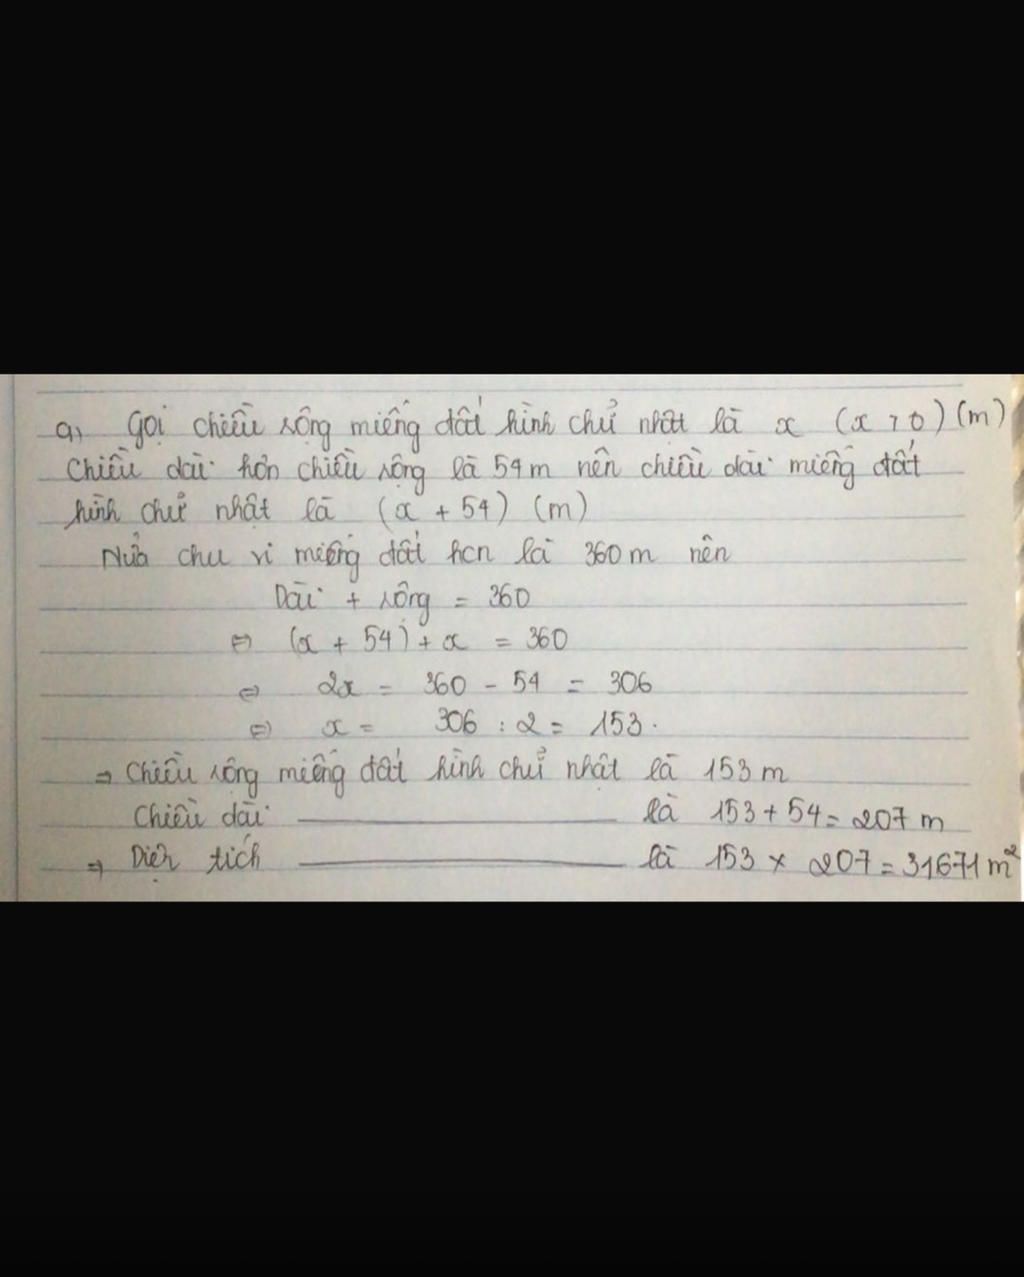 a, Gọi chiều rộng miếng đất hình chữ nhật là x (x > 0) (m)
Chiều dài hơn chiều rộng là 54 m nên chiều dài miếng đất
hình chữ nhật là (x + 54) (m)
Nửa chu vi miếng đất hcn là 360 m nên
Dài + rộng = 360
⇔ (x + 54) + x = 360
⇔ 2x = 360 - 54 = 306
⇔ x = 306 : 2 = 153.
⇒ Chiều rộng miếng đất hình chữ nhật là 153 m
Chiều dài ——— là 153 + 54 = 207 m
⇒ Diện tích ——— là 153 × 207 = 31671 m²